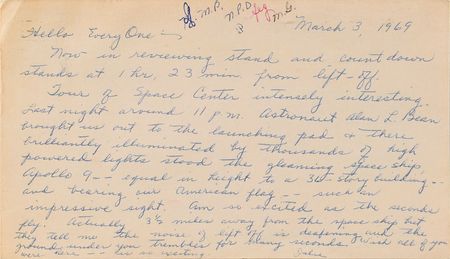 M.P. N.P.D. M.G.
Hello Every One - March 3, 1969
Now in reviewing stand and countdown
stands at 1 hr, 23 min. from lift-off.
Tour of Space Center intensely interesting.
Last night around 11 p.m. Astronaut Alan L Bean
brought us out to the launching pad & there
brilliantly illuminated by thousands of high
powered lights stood the gleaming space ship,
Apollo 9 -- equal in height to a 36 story building --
and bearing our American flag -- such an
impressive sight. Am so excited as the seconds
fly. Actually 3½ miles away from the space ship but
they tell me the noise of lift off is deafening and the
ground under you trembles for many seconds. Wish all of you
were here --